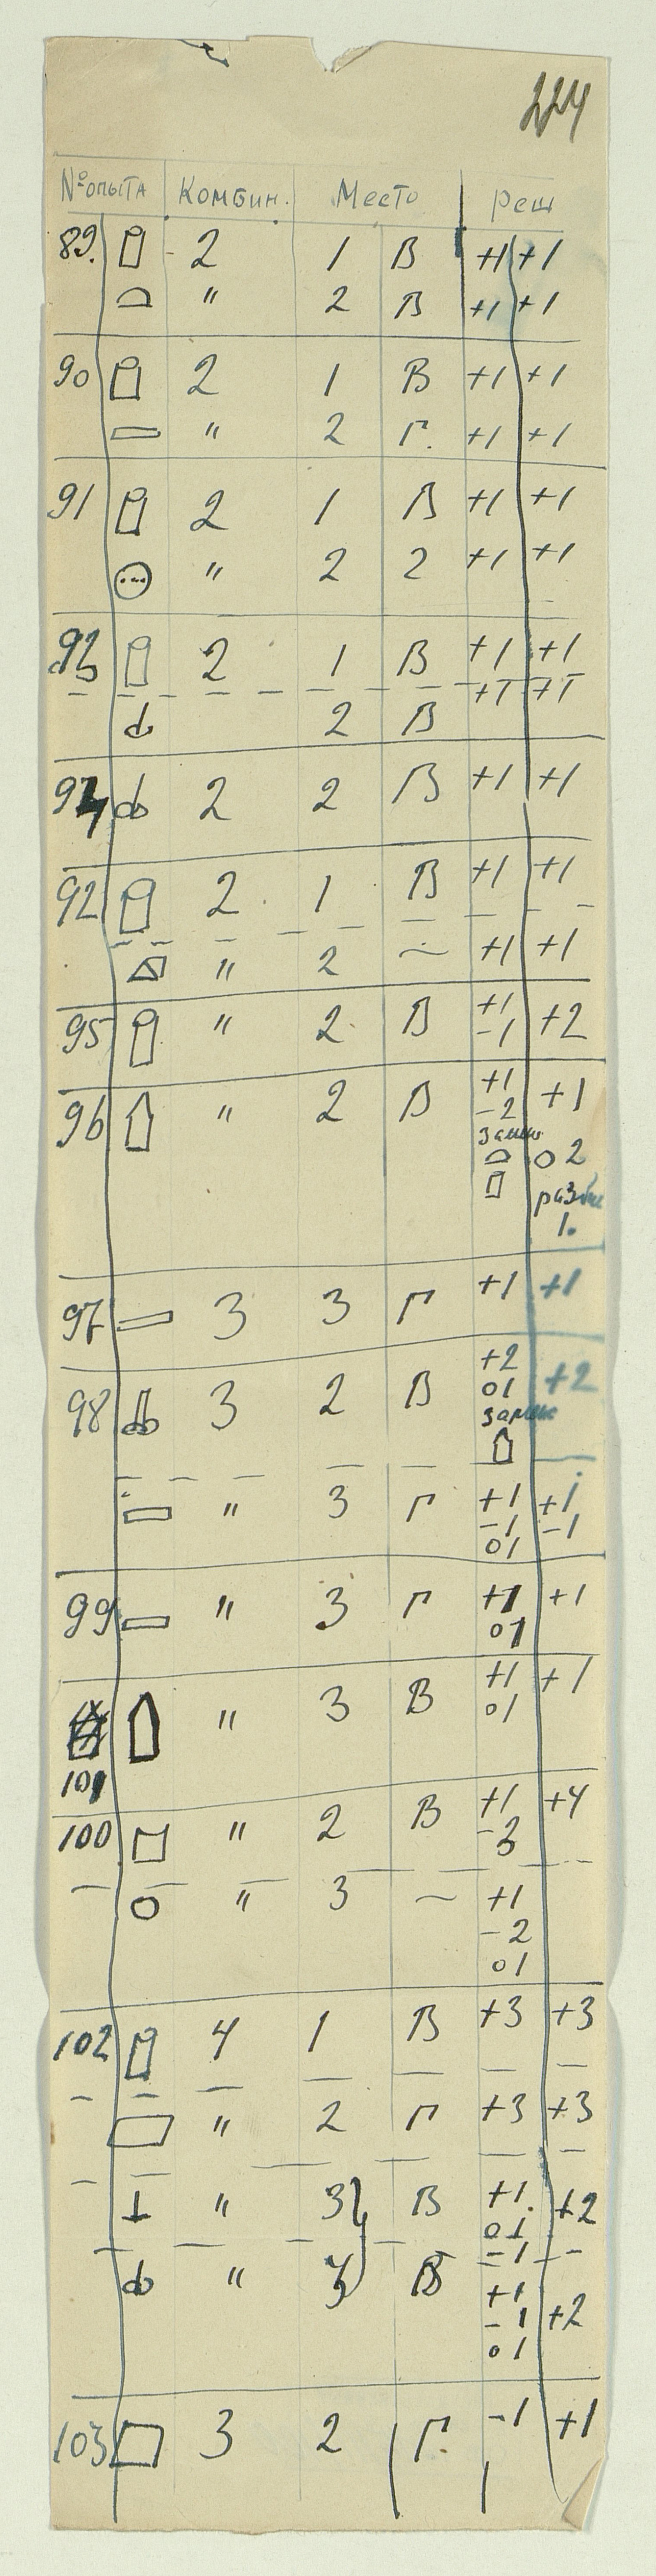 224
№ опыта Комбин. Место Реш
89. 2 1 В +1 +1
" 2 В +1 +1
90 2 1 В +1 +1
" 2 Г. +1 +1
91 2 1 В +1 +1
" 2 2 +1 +1
2 1 В +1 +1
2 В +1 +1
94 2 2 В +1 +1
92 2 1 В +1 +1
" 2 ~ +1 +1
95 " 2 В +1 +2
-1
96 " 2 В +1 +1
-2
0 2
1.
97 3 3 Г +1 +1
98 3 2 В +2 +2
01
" 3 Г +1 +1
-1 -1
01
99 " 3 Г +1 +1
01
" 3 В +1 +1
01
101
100 " 2 В +1 +4
-3
" 3 ~ +1
-2
01
102 4 1 В +3 +3
" 2 Г +3 +3
" 3 В +1. +2
01
-1
" В +1
-1 +2
01
103 3 2 Г. -1 +1